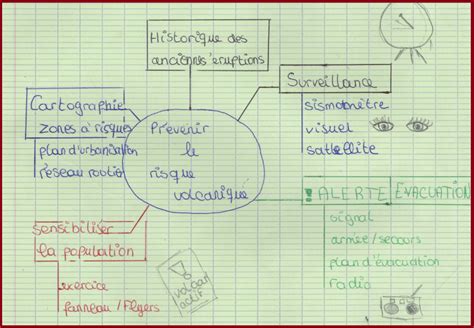 Historique des
anciennes éruptions
Surveillance
sismomètre
visuel
satellite
Cartographie
zones à risques
plan d'urbanisation
réseau routier
Prévenir
le
risque
volcanique
! ALERTE / ÉVACUATION
signal
armée / secours
plan d'évacuation
radio
sensibiliser
la population
exercice
panneau / flyers
volcan
actif